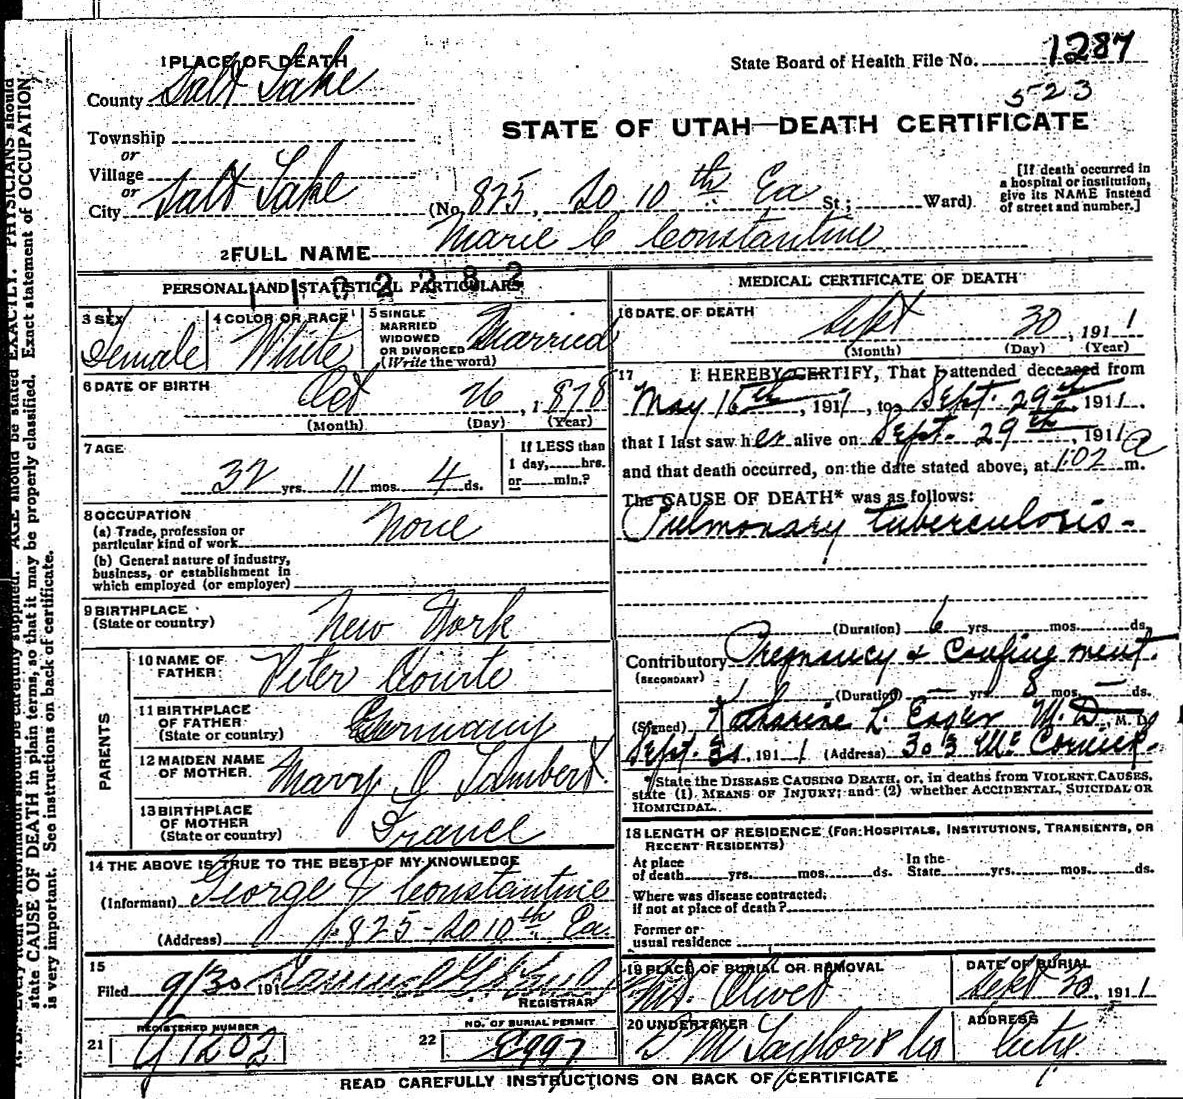 1 PLACE OF DEATH
County Salt Lake
Township
or
Village
or
City Salt Lake
State Board of Health File No. 1287
523
STATE OF UTAH—DEATH CERTIFICATE
(No. 825, So 10th Ea St; Ward)
[If death occurred in
a hospital or institution,
give its NAME instead
of street and number.]
2 FULL NAME Marie C Constantine
1102282
PERSONAL AND STATISTICAL PARTICULARS
3 SEX Female
4 COLOR OR RACE White
5 SINGLE
MARRIED
WIDOWED
OR DIVORCED
(Write the word) Married
6 DATE OF BIRTH Oct 26, 1878
(Month) (Day) (Year)
7 AGE
32 yrs. 11 mos. 4 ds.
If LESS than
1 day, hrs.
or min.?
8 OCCUPATION
(a) Trade, profession or
particular kind of work None
(b) General nature of industry,
business, or establishment in
which employed (or employer)
9 BIRTHPLACE
(State or country) New York
PARENTS
10 NAME OF
FATHER Peter Courte
11 BIRTHPLACE
OF FATHER
(State or country) Germany
12 MAIDEN NAME
OF MOTHER Mary O Lambert
13 BIRTHPLACE
OF MOTHER
(State or country) France
14 THE ABOVE IS TRUE TO THE BEST OF MY KNOWLEDGE
(Informant) George J Constantine
(Address) 825 - So 10th Ea.
15
Filed 9/30 191 Samuel G.
REGISTRAR
REGISTERED NUMBER
21 G1202
NO. OF BURIAL PERMIT
22 E997
MEDICAL CERTIFICATE OF DEATH
16 DATE OF DEATH Sept 30, 1911
(Month) (Day) (Year)
17 I HEREBY CERTIFY, That I attended deceased from
May 16th, 1911, to Sept. 29th, 1911.
that I last saw her alive on Sept. 29th, 1911
and that death occurred, on the date stated above, at 1:02 a m.
The CAUSE OF DEATH* was as follows:
Pulmonary tuberculosis -
(Duration) 6 yrs. mos. ds.
Contributory Pregnancy & Confinement.
(SECONDARY)
(Duration) — yrs 8 mos. — ds.
(Signed) Katharine L. Eager M.D., M. D.
Sept. 30, 1911 (Address) 303 McCornick
*State the DISEASE CAUSING DEATH, or, in deaths from VIOLENT CAUSES,
state (1) MEANS OF INJURY; and (2) whether ACCIDENTAL, SUICIDAL OR
HOMICIDAL.
18 LENGTH OF RESIDENCE (FOR HOSPITALS, INSTITUTIONS, TRANSIENTS, OR
RECENT RESIDENTS)
At place
of death yrs. mos. ds.
In the
State yrs. mos. ds.
Where was disease contracted,
if not at place of death?
Former or
usual residence
19 PLACE OF BURIAL OR REMOVAL
Mt. Olivet
DATE OF BURIAL
Sept 30, 1911
20 UNDERTAKER
S M Taylor & Co
ADDRESS
City
READ CAREFULLY INSTRUCTIONS ON BACK OF CERTIFICATE
N. B.—Every item of information should be carefully supplied. AGE should be stated EXACTLY. PHYSICIANS should
state CAUSE OF DEATH in plain terms, so that it may be properly classified. Exact statement of OCCUPATION
is very important. See instructions on back of certificate.